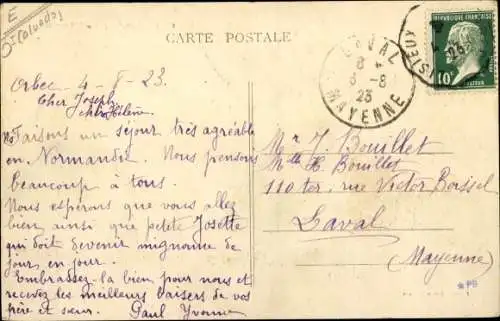 E
(Calvados)
CARTE POSTALE
RÉPUBLIQUE FRANÇAISE
10c
LAVAL
8
6-8
23
MAYENNE
LISIEUX
Orbec 4-8-23.
Cher Joseph
chère Hélène
Faisons un séjour très agréable
en Normandie. Nous pensons
beaucoup à tous.
Nous espérons que vous allez
bien ainsi que petite Josette
qui doit devenir mignonne de
jour en jour.
Embrasser-la bien pour nous et
recevez les meilleurs baisers de vos
père et sœur. Paul Yvonne
Mr J. Bouillet
Mlle H. Bouillet
110 ter, rue Victor Boissel
Laval
(Mayenne)